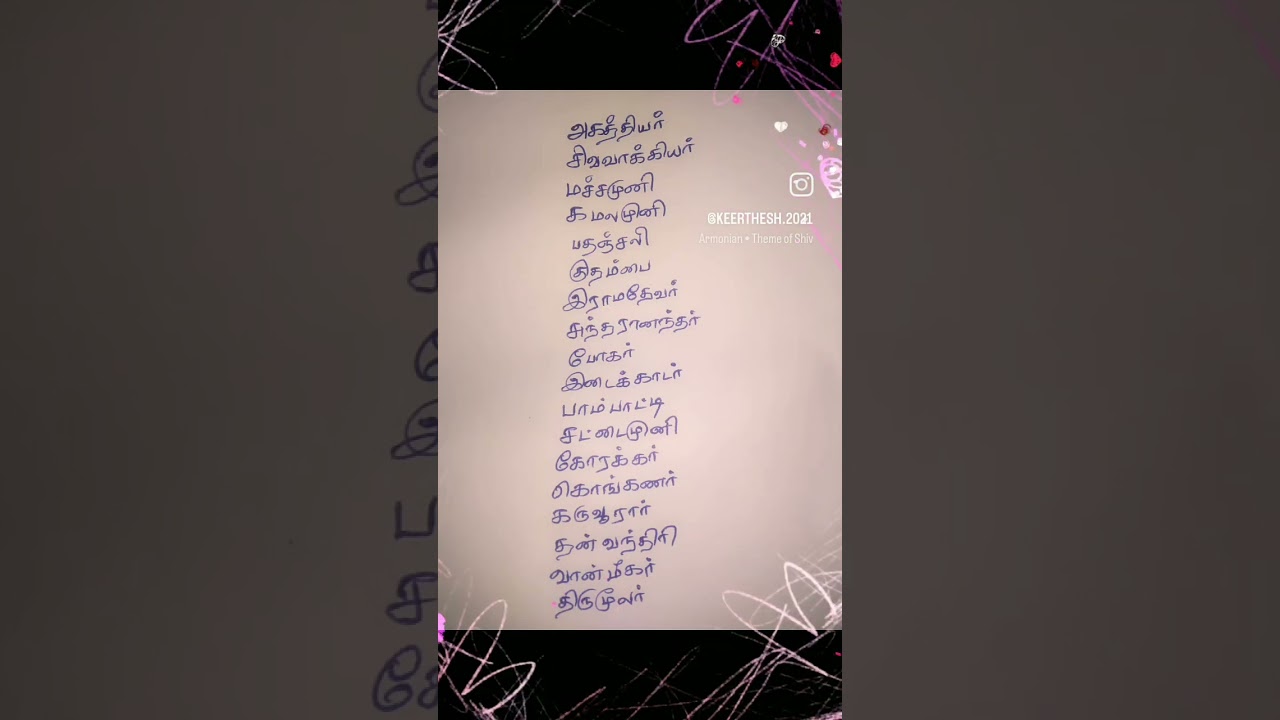 அகத்தியர்
சிவவாக்கியர்
மச்சமுனி
கமலமுனி
பதஞ்சலி
குதம்பை
இராமதேவர்
சுந்தரானந்தர்
போகர்
இடைக்காடர்
பாம்பாட்டி
சட்டைமுனி
கோரக்கர்
கொங்கணர்
கருவூரார்
தன்வந்திரி
வான்மீகர்
திருமூலர்
@KEERTHESH.2021
Armonian • Theme of Shiv